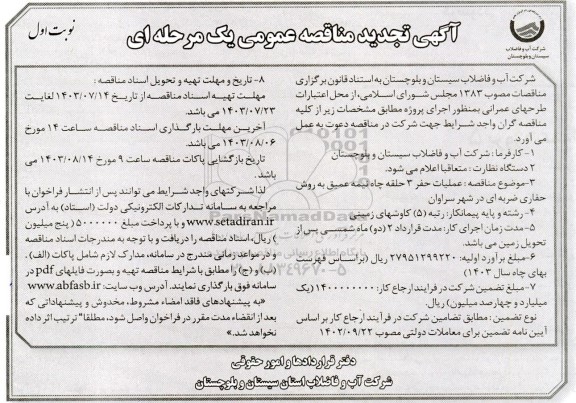 آگهی تجدید مناقصه عمومی یک مرحله ای
نوبت اول
شرکت آب و فاضلاب
سیستان و بلوچستان
شرکت آب و فاضلاب سیستان و بلوچستان به استناد قانون برگزاری
مناقصات مصوب ۱۳۸۳ مجلس شورای اسلامی، از محل اعتبارات
طرحهای عمرانی بمنظور اجرای پروژه مطابق مشخصات زیر از کلیه
مناقصه گران واجد شرایط جهت شرکت در مناقصه دعوت به عمل
می آورد.
۱-کارفرما : شرکت آب و فاضلاب سیستان و بلوچستان
۲ دستگاه نظارت : متعاقبا اعلام می شود.
۳-موضوع مناقصه : عملیات حفر ۳ حلقه چاه نیمه عمیق به روش
حفاری ضربه ای در شهر سراوان
۴- رشته و پایه پیمانکار: رتبه (۵) کاوشهای زمینی
۵-مدت زمان اجرای کار: مدت قرارداد ۲ (دو) ماه شمسی پس از
تحویل زمین می باشد.
۶-مبلغ برآورد اولیه: ۲۷۹۵۱۲۹۹۲۲۰ ریال (براساس فهرست
بهای چاه سال ۱۴۰۳)
۷-مبلغ تضمین شرکت در فرایند ارجاع کار: ۱۴۰۰۰۰۰۰۰۰ (یک
میلیارد و چهارصد میلیون) ریال.
نوع تضمین : مطابق تضامین شرکت در فرآیند ارجاع کار بر اساس
آیین نامه تضمین برای معاملات دولتی مصوب ۱۴۰۲/۰۹/۲۲
۸- تاریخ و مهلت تهیه و تحویل اسناد مناقصه :
مهلت تهیه اسناد مناقصه از تاریخ ۱۴۰۳/۰۷/۱۴ لغایت
۱۴۰۳/۰۷/۲۳ می باشد.
آخرین مهلت بارگذاری اسناد مناقصه ساعت ۱۴ مورخ
۱۴۰۳/۰۸/۰۶ می باشد.
تاریخ بازگشایی پاکات مناقصه ساعت ۹ مورخ ۱۴۰۳/۰۸/۱۴ می
باشد.
لذا شرکتهای واجد شرایط می توانند پس از انتشار فراخوان با
مراجعه به سامانه تدارکات الکترونیکی دولت (ستاد) به آدرس
www.setadiran.ir و با پرداخت مبلغ ۵۰۰۰۰۰۰ (پنج میلیون
) ریال، اسناد مناقصه را دریافت و با توجه به مندرجات اسناد مناقصه
و در مواعد زمانی مندرج در سامانه، مدارک لازم شامل پاکات (الف)،
(ب) و (ج) را مطابق با شرایط مناقصه تهیه و بصورت فایلهای pdf در
سامانه فوق بارگذاری نمایند. آدرس وب سایت: www.abfasb.ir
«به پیشنهادهای فاقد امضاء مشروط، مخدوش و پیشنهاداتی که
بعد از انقضاء مدت مقرر در فراخوان واصل شود، مطلقا" ترتیب اثر داده
نخواهد شد.»
دفتر قراردادها و امور حقوقی
شرکت آب و فاضلاب استان سیستان و بلوچستان
ParsNamadData